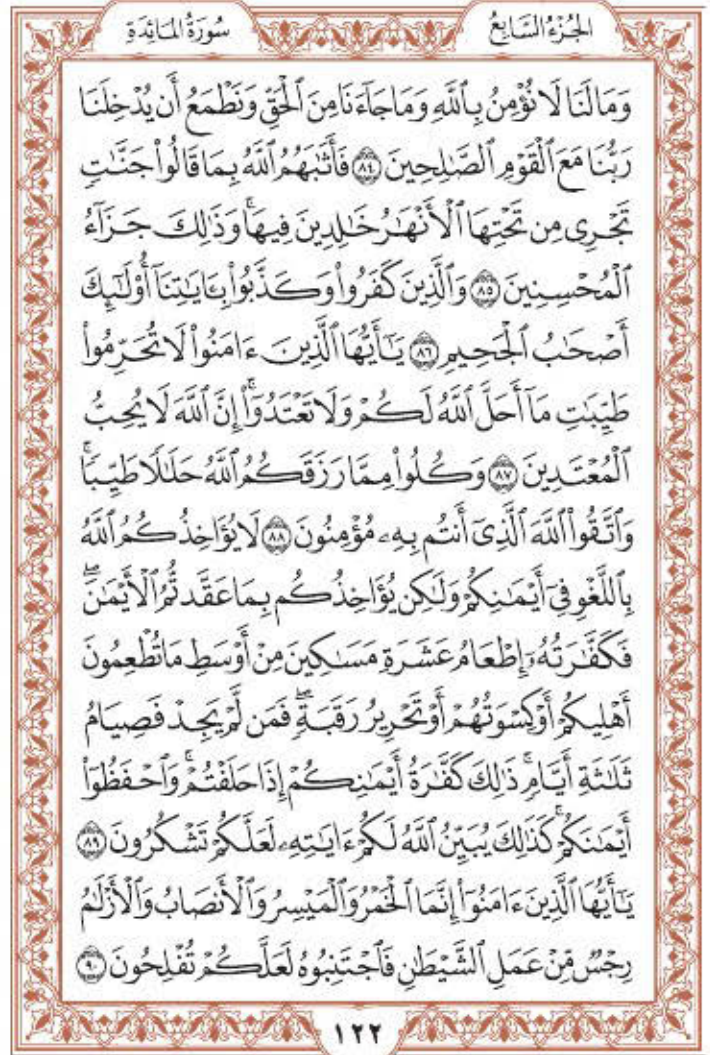 الجُزْءُ السَّابِعُ سُورَةُ المَائِدَةِ
وَمَا لَنَا لَا نُؤْمِنُ بِٱللَّهِ وَمَا جَآءَنَا مِنَ ٱلْحَقِّ وَنَطْمَعُ أَن يُدْخِلَنَا
رَبُّنَا مَعَ ٱلْقَوْمِ ٱلصَّٰلِحِينَ ٨٤ فَأَثَٰبَهُمُ ٱللَّهُ بِمَا قَالُوا۟ جَنَّٰتٍ
تَجْرِى مِن تَحْتِهَا ٱلْأَنْهَٰرُ خَٰلِدِينَ فِيهَاۚ وَذَٰلِكَ جَزَآءُ
ٱلْمُحْسِنِينَ ٨٥ وَٱلَّذِينَ كَفَرُوا۟ وَكَذَّبُوا۟ بِـَٔايَٰتِنَآ أُو۟لَٰٓئِكَ
أَصْحَٰبُ ٱلْجَحِيمِ ٨٦ يَٰٓأَيُّهَا ٱلَّذِينَ ءَامَنُوا۟ لَا تُحَرِّمُوا۟
طَيِّبَٰتِ مَآ أَحَلَّ ٱللَّهُ لَكُمْ وَلَا تَعْتَدُوٓا۟ۚ إِنَّ ٱللَّهَ لَا يُحِبُّ
ٱلْمُعْتَدِينَ ٨٧ وَكُلُوا۟ مِمَّا رَزَقَكُمُ ٱللَّهُ حَلَٰلًا طَيِّبًاۚ
وَٱتَّقُوا۟ ٱللَّهَ ٱلَّذِىٓ أَنتُم بِهِۦ مُؤْمِنُونَ ٨٨ لَا يُؤَاخِذُكُمُ ٱللَّهُ
بِٱللَّغْوِ فِىٓ أَيْمَٰنِكُمْ وَلَٰكِن يُؤَاخِذُكُم بِمَا عَقَّدتُّمُ ٱلْأَيْمَٰنَۖ
فَكَفَّٰرَتُهُۥٓ إِطْعَامُ عَشَرَةِ مَسَٰكِينَ مِنْ أَوْسَطِ مَا تُطْعِمُونَ
أَهْلِيكُمْ أَوْ كِسْوَتُهُمْ أَوْ تَحْرِيرُ رَقَبَةٍۖ فَمَن لَّمْ يَجِدْ فَصِيَامُ
ثَلَٰثَةِ أَيَّامٍۚ ذَٰلِكَ كَفَّٰرَةُ أَيْمَٰنِكُمْ إِذَا حَلَفْتُمْۚ وَٱحْفَظُوٓا۟
أَيْمَٰنَكُمْۚ كَذَٰلِكَ يُبَيِّنُ ٱللَّهُ لَكُمْ ءَايَٰتِهِۦ لَعَلَّكُمْ تَشْكُرُونَ ٨٩
يَٰٓأَيُّهَا ٱلَّذِينَ ءَامَنُوٓا۟ إِنَّمَا ٱلْخَمْرُ وَٱلْمَيْسِرُ وَٱلْأَنصَابُ وَٱلْأَزْلَٰمُ
رِجْسٌ مِّنْ عَمَلِ ٱلشَّيْطَٰنِ فَٱجْتَنِبُوهُ لَعَلَّكُمْ تُفْلِحُونَ ٩٠
١٢٢